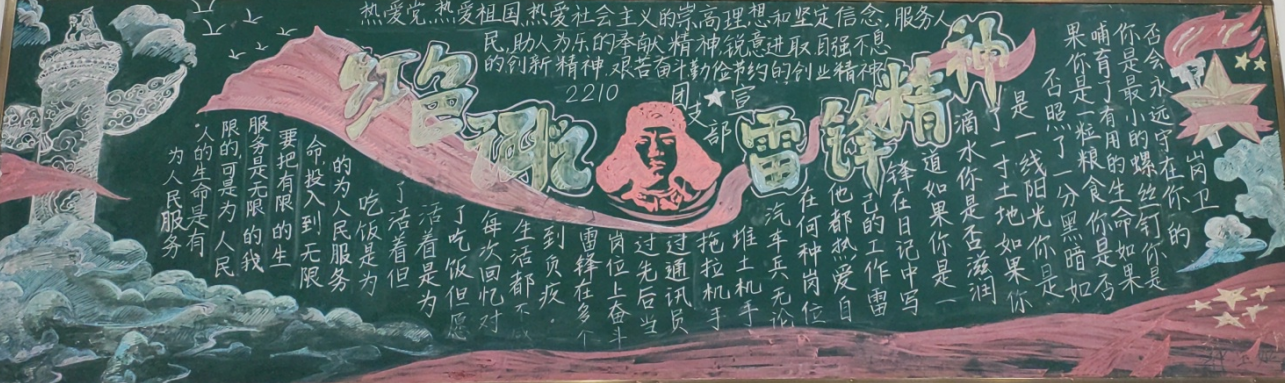 热爱党,热爱祖国,热爱社会主义的崇高理想和坚定信念,服务人
民,助人为乐的奉献精神,锐意进取自强不息
的创新精神,艰苦奋斗勤俭节约的创业精神
2210
团支部
宣
红色忆
雷锋精神
为人民服务
人的生命是有
限的可是为人民
服务是无限的我
要把有限的生
命投入到无限
的为人民服务
吃饭是为
了活着但
活着是为
了吃饭但愿
每次回忆对
生活都不
到负疚.
雷锋在多个
岗位上奋斗
过先后当
过通讯员
拖拉机手
堆土机手、
汽车兵无论
在何种岗位
他都热爱自
己的工作雷
锋在日记中写
道如果你是一
滴水你是否滋润
了一寸土地如果你
是一线阳光你是
否照了一分黑暗如
果你是一粒粮食你是否
哺育了有用的生命如果
你是最小的螺丝钉你是
否会永远守在你的
岗卫